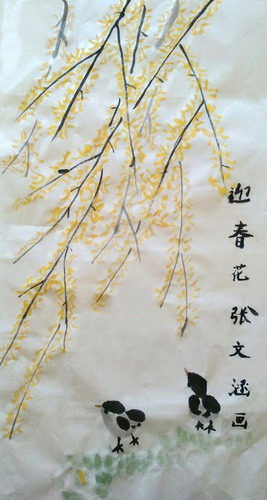 迎春花张文涵画